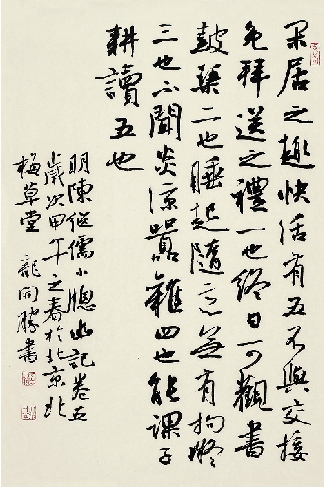 閑居之趣快活有五不與交接
免拜送之禮一也終日可觀書
鼓琴二也睡起隨意無有拘礙
三也不聞炎涼囂雜四也能課子
耕讀五也
明陳繼儒小窗幽記卷五
歲次甲午之春於北京北
梅草堂 龍開勝書